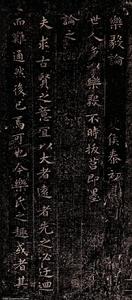 樂毅論
夏侯泰初
世人多以樂毅不時拔莒即墨
論之
夫求古賢之意宜以大者遠者先之必迂迴
而難通然後已焉可也今樂氏之趣或者其